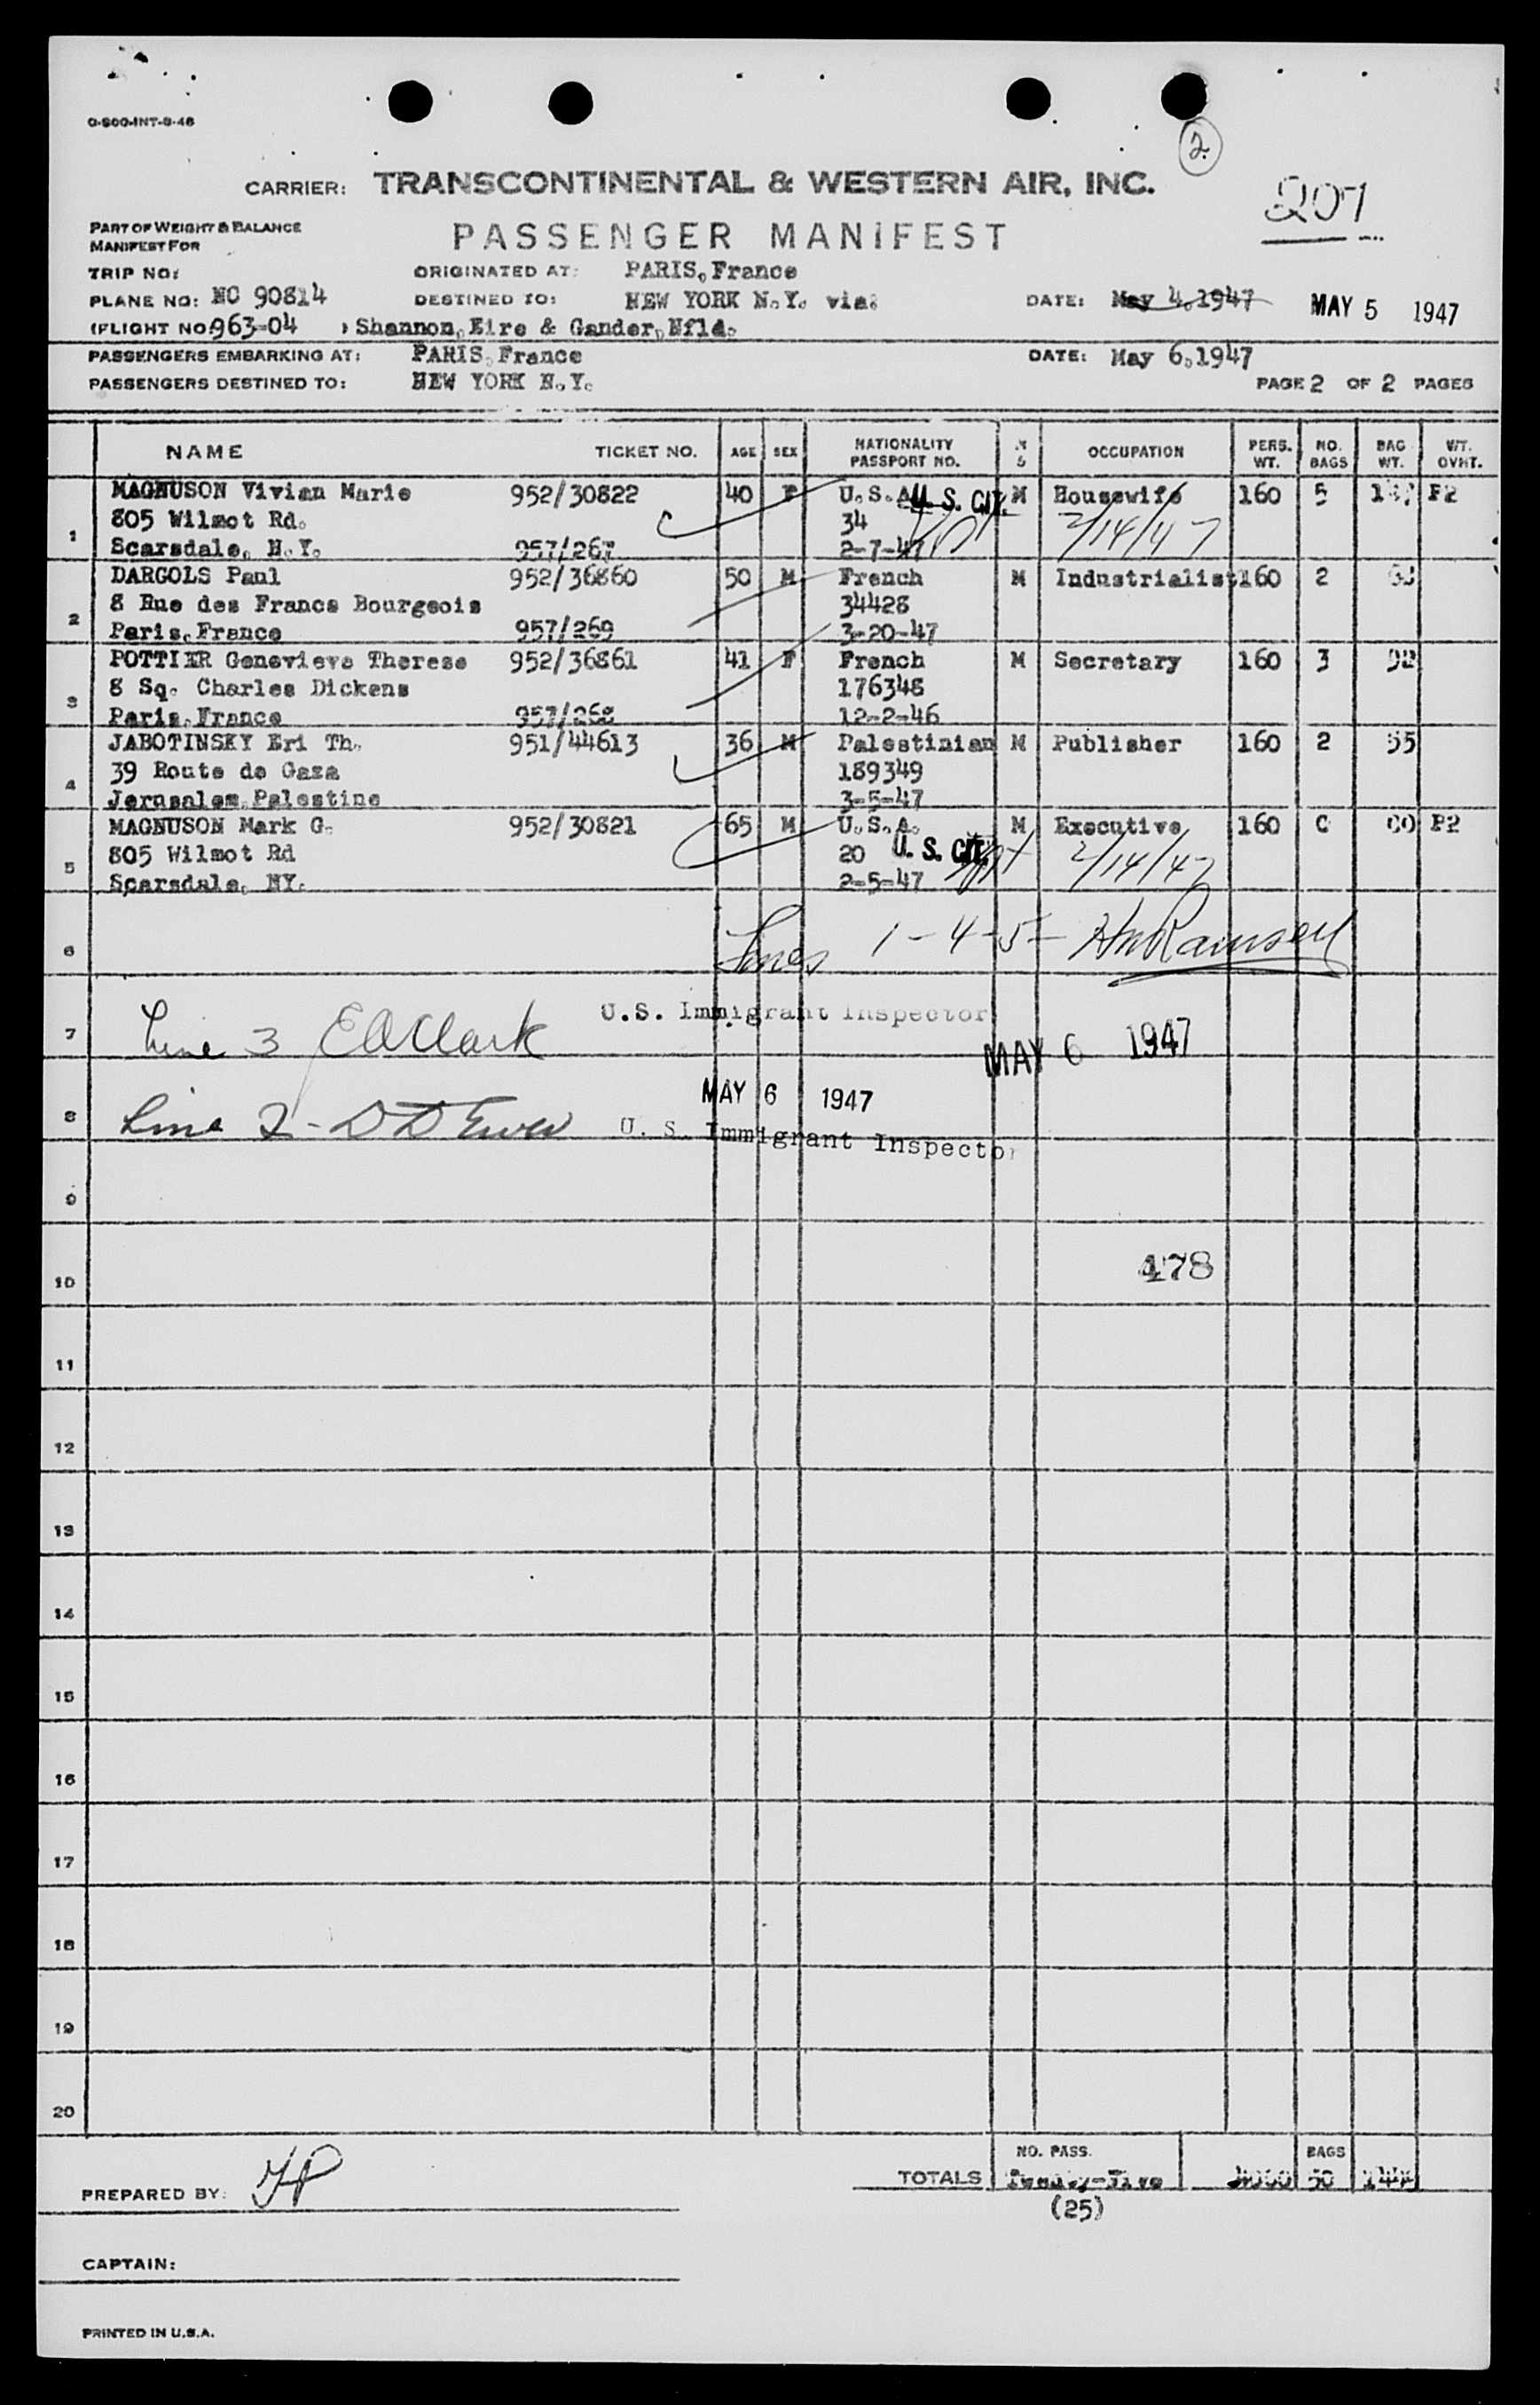 O-800-INT-8-46
2.
CARRIER: TRANSCONTINENTAL & WESTERN AIR, INC.
207
PART OF WEIGHT & BALANCE
MANIFEST FOR
PASSENGER MANIFEST
TRIP NO: ORIGINATED AT: PARIS, France
PLANE NO: NC 90814 DESTINED TO: NEW YORK N.Y. via: DATE: May 4, 1947 MAY 5 1947
(FLIGHT NO. 963-04 ) Shannon, Eire & Gander, Nfld.
PASSENGERS EMBARKING AT: PARIS, France DATE: May 6, 1947
PASSENGERS DESTINED TO: NEW YORK N.Y. PAGE 2 OF 2 PAGES
NAME TICKET NO. AGE SEX NATIONALITY PASSPORT NO. M S OCCUPATION PERS. WT. NO. BAGS BAG WT. WT. OVHT.
MAGNUSON Vivian Marie 952/30822 40 F U.S.A. U. S. CIT. M Housewife 160 5 P2
1 805 Wilmot Rd. 34 2/14/47
Scarsdale, N.Y. 957/267 2-7-47
DARGOLS Paul 952/36860 50 M French M Industrialist 160 2
2 8 Rue des Francs Bourgeois 34428
Paris, France 957/269 3-20-47
POTTIER Genevieve Therese 952/36861 41 F French M Secretary 160 3 92
3 8 Sq. Charles Dickens 176348
Paris, France 957/268 12-2-46
JABOTINSKY Eri Th. 951/44613 36 M Palestinian M Publisher 160 2 55
4 39 Route de Gaza 189349
Jerusalem, Palestine 3-5-47
MAGNUSON Mark G. 952/30821 65 M U.S.A. M Executive 160 0 00 P2
5 805 Wilmot Rd 20 U. S. CIT. 2/14/47
Scarsdale, NY. 2-5-47
6 Lines 1-4-5- HM Ramsey
U.S. Immigrant Inspector
7 Line 3 E A Clark MAY 6 1947
MAY 6 1947
8 Line 2 - D D U. S. Immigrant Inspector
9
10 478
11
12
13
14
15
16
17
18
19
20
NO. PASS. BAGS
TOTALS Twenty-Five 50
PREPARED BY: (25)
CAPTAIN:
PRINTED IN U.S.A.